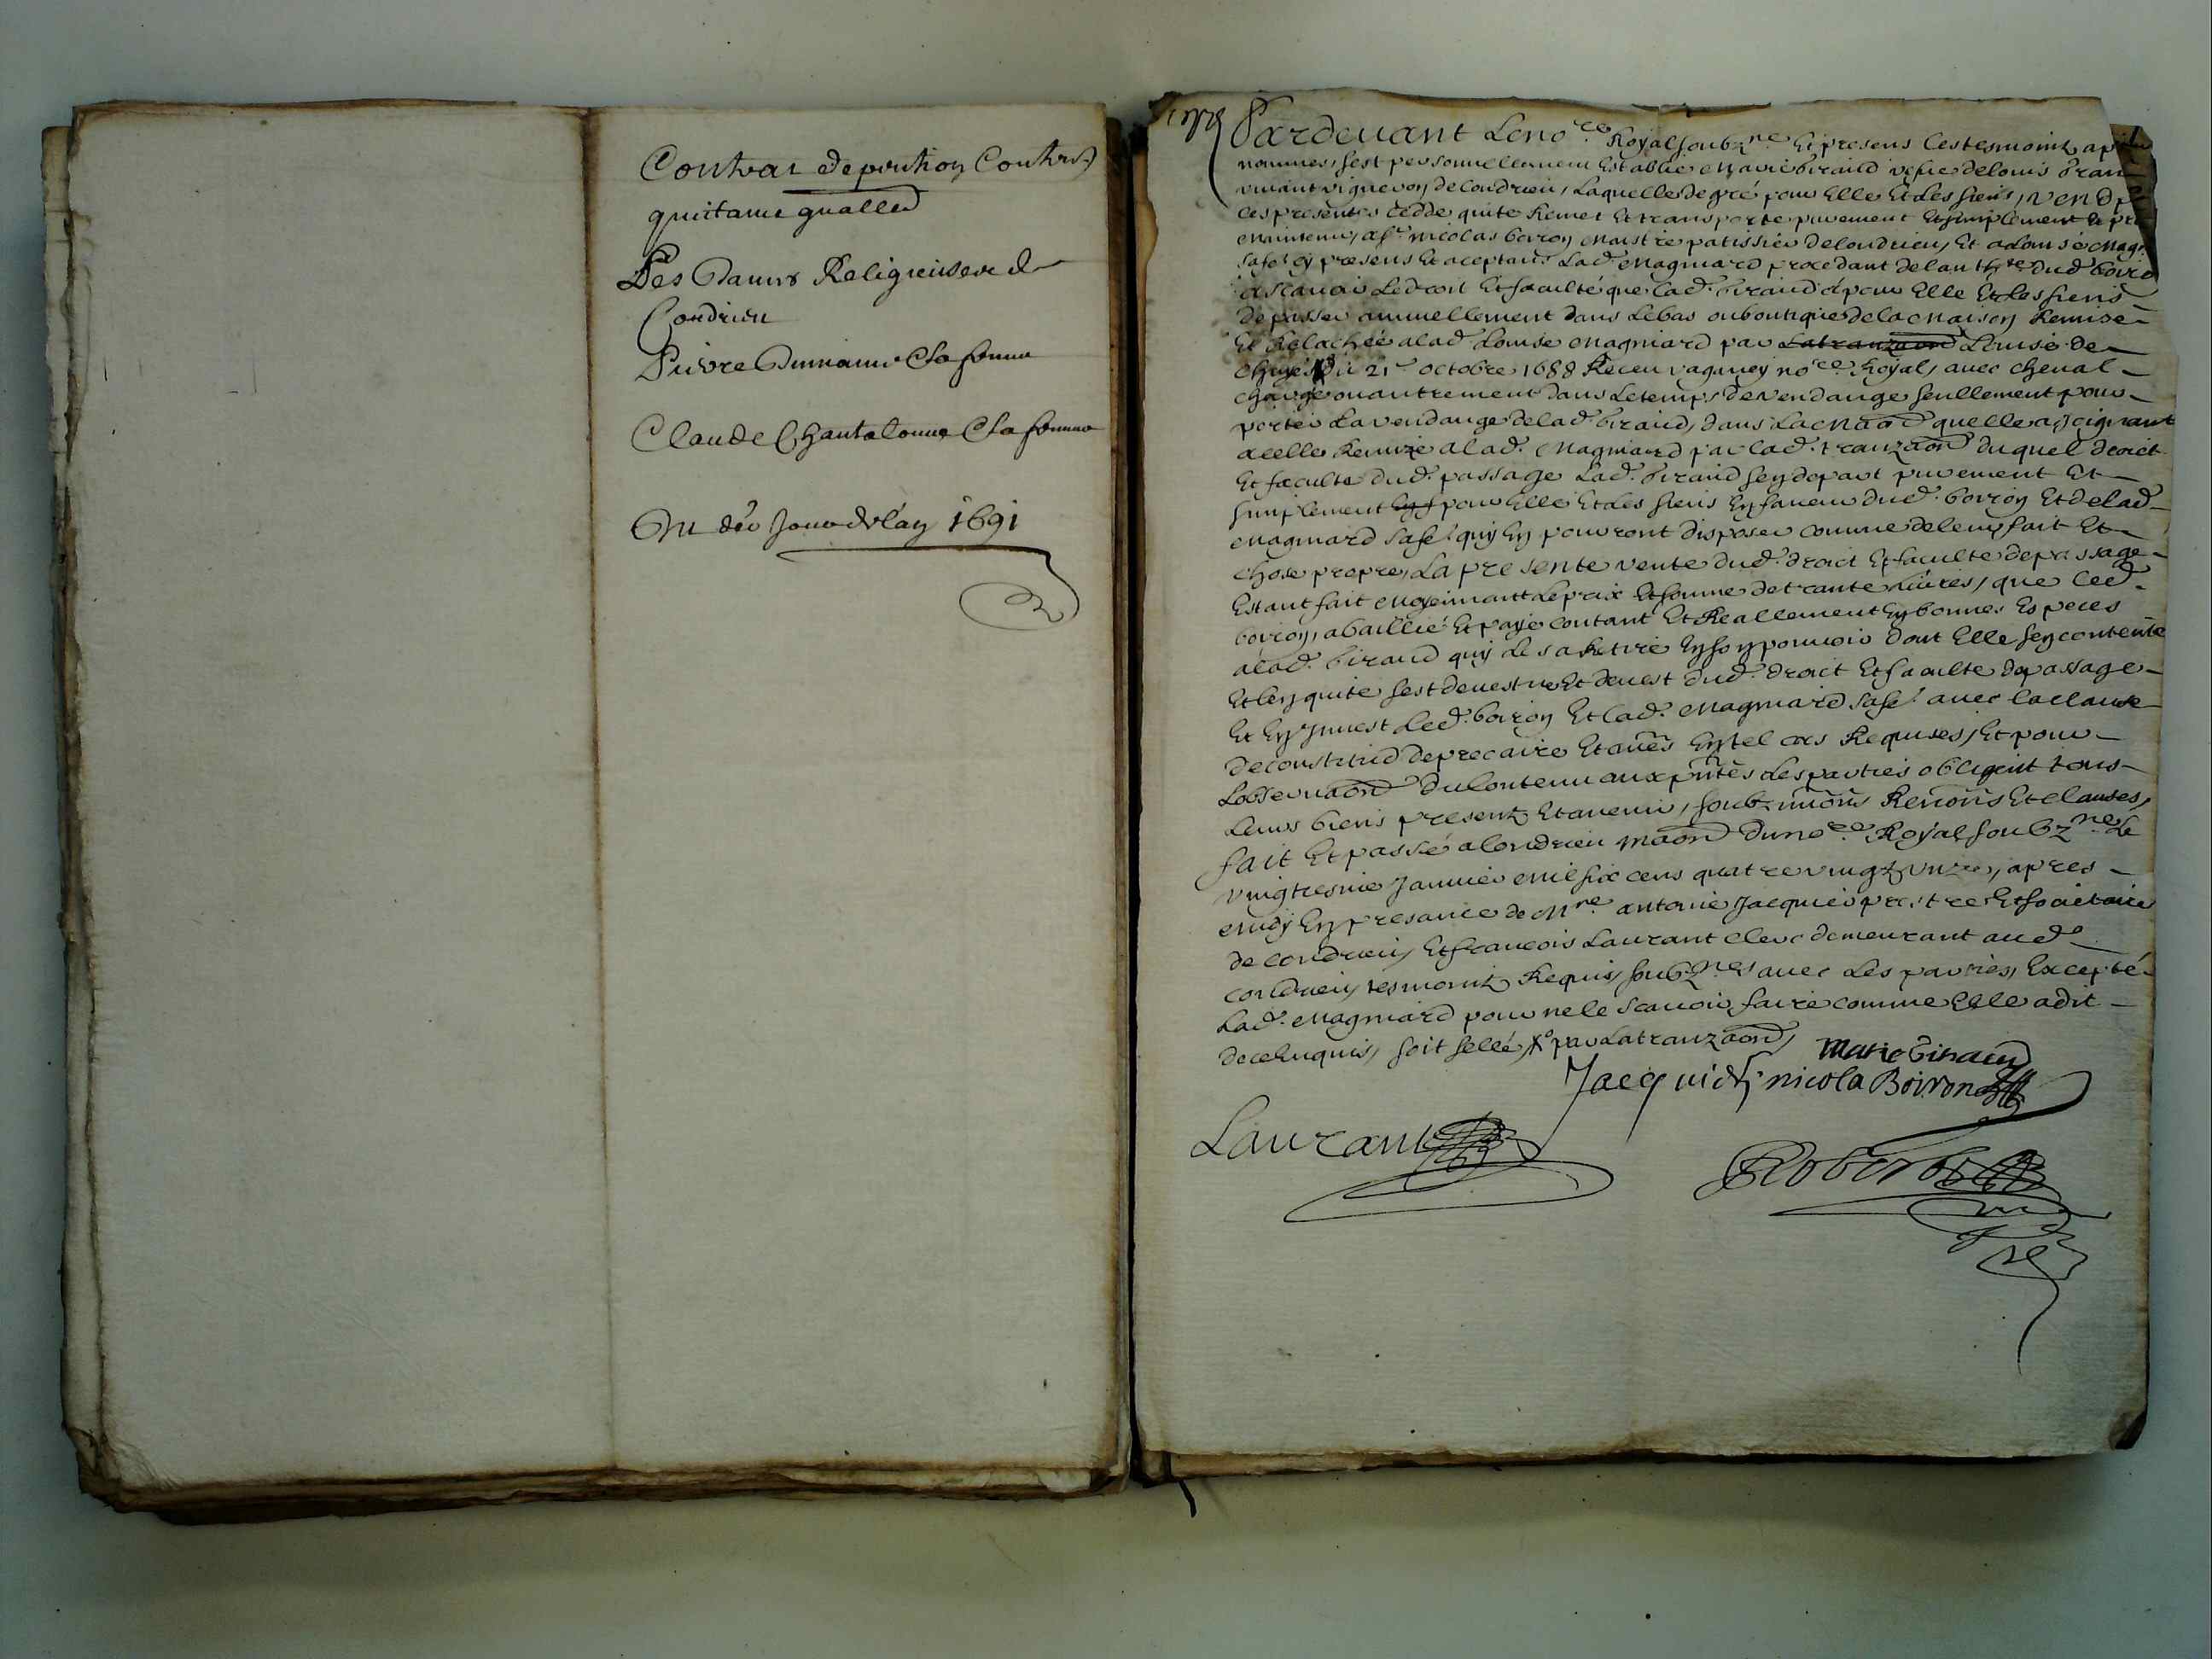 Contrat de pention Contenant
quittance gnalle
Des Dames Religieuses de
Condrieu
Pierre & sa femme
Claude Chantelouve & sa femme
Du der Jour de lan 1691
Pardevant Le no.re Royal soubz.ne Et presens les tesmoins apres
nommes, s'est personnellement Establie Marie biraud vefve de louis
vivant vigneron de Condrieu, Laquelle de gré pour Elle Et les siens, vend p
ces presentes cedde quite Remet Et transporte purement Et simplement Et pr
maintenir, a sr nicolas boiron maistre patissier de Condrieu, Et a Louise Magn
sa fe. cy presens Et aceptans Lad. Magniard procedant de lauth.te dud. boiro
a scavoir Le droit Et faculté que lad. biraud a pour Elle Et les siens
de passer annuellement dans Le bas ou boutique de la maison Remise
Et Relachée a lad. Louise Magniard par Latranzaon Louise de
du 21e octobre 1688 Receu vaganey no.re Royal, avec cheval
chargé ou autrement dans Le temps de vendange seullement pour
porter La vendange de lad. biraud, dans La maon quelle a, Joignant
a celle Remize a lad. Magniard par lad. tranzaon duquel droict
Et faculte dud. passage Lad. biraud sen depart purement Et
simplement pour Elle Et les siens En faveur dud. boiron Et de lad.
Magniard sa fe. quy En pourront disposer comme de leur fait Et
chose propre, La presente vente dud. droict Et faculte de passage
Estant fait moyennant Le prix Et somme de trante Livres, que led.
boiron, a baillié Et payé Contant Et Reallement En bonnes Especes
a lad. biraud quy Les a Retiré En son pouvoir dont Elle sen contente
Et len quite sest devestue Et devest dud. droict Et faculte de passage
Et En Jnvest Led. boiron Et lad. Magniard sa fe. avec la clause
de constitud de precaire Et aues En tel cas Requises, Et pour
Lobservaon du Contenu aux pntes Les parties obligent tous
Leurs biens presentz Et avenir, soubz Renons Et clauses,
fait Et passé a Condrieu maon du no.re Royal soubz.ne Le
vingtiesme Janvier mil six cens quatre vingtz unze, apres
midy En presance de M.re antoine Jacquier prestre Et societaire
de Condrieu, Et francois Laurant clerc demeurant aud.
Condrieu, tesmoins Requis, soubz.nes avec Les parties, Excepté
Lad. Magniard pour ne le scavoir faire comme Elle a dit
de ce Enquis, soit sellé, par La tranzaon
Marie biraud
Jacquier nicola Boiron
Laurant
Robert